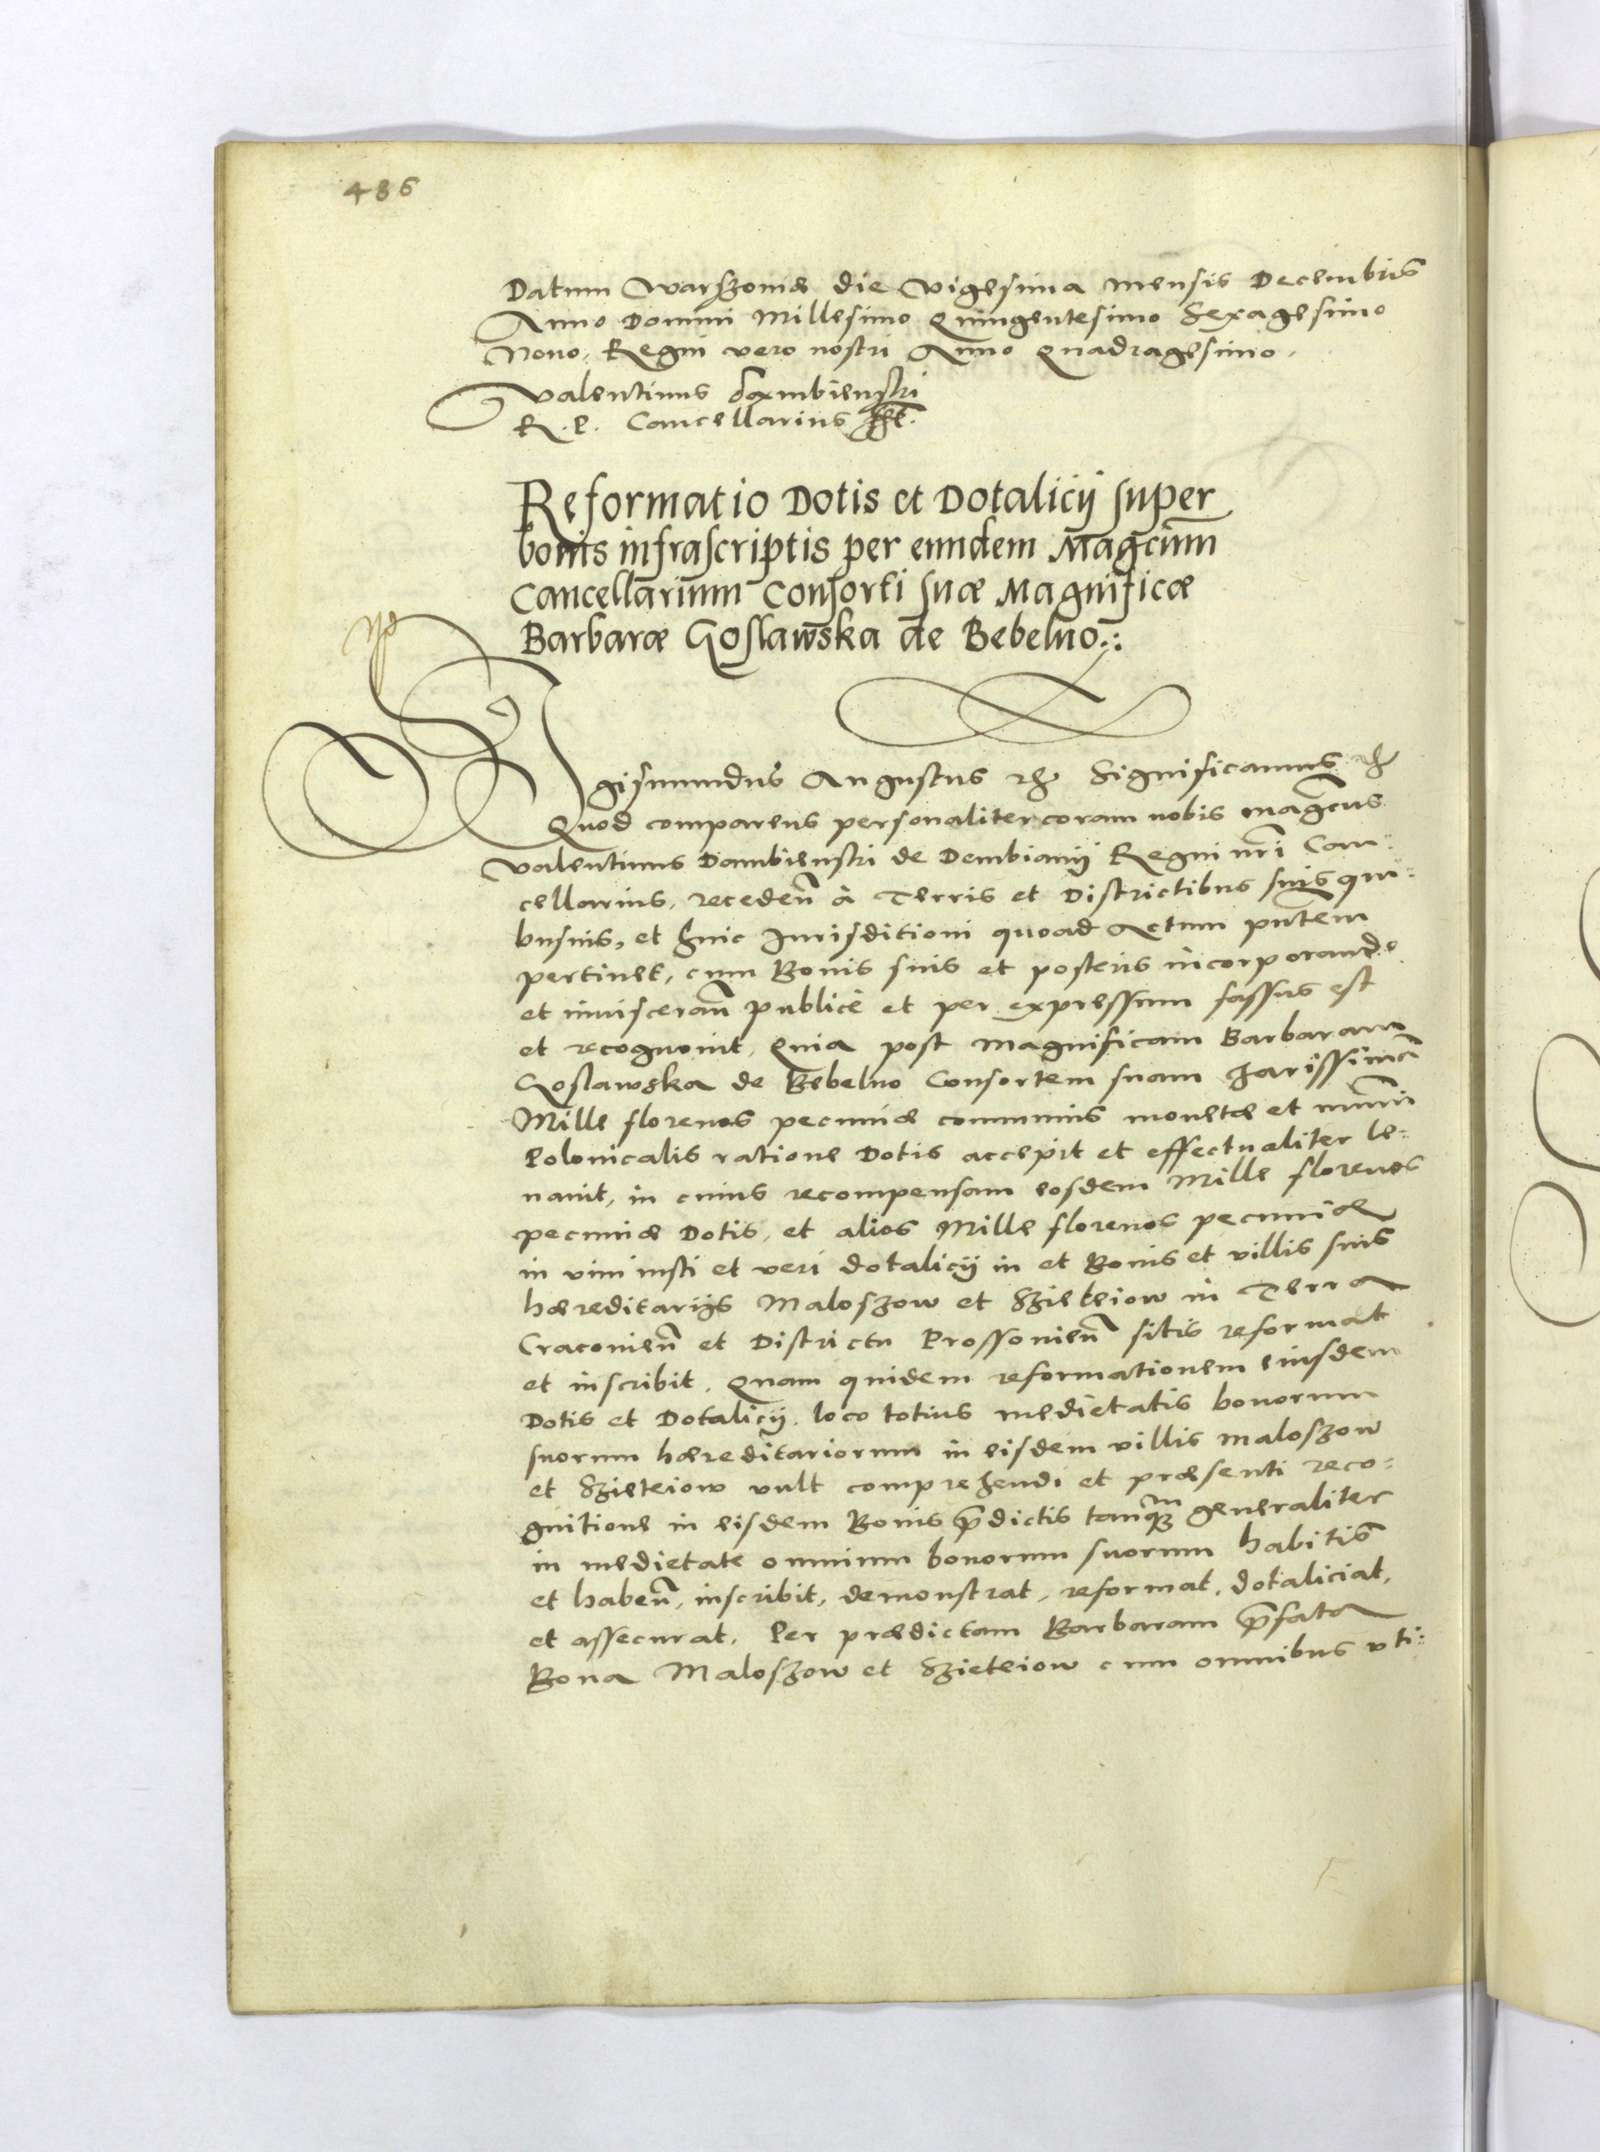 486
Datum Warszoviæ die Vigesima mensis Decembris
Anno Domini Millesimo Quingentesimo Sexagesimo
Nono, Regni vero nostri Anno Quadragesimo.
Valentinus Dambienski
R. P. Cancellarius sst.
Reformatio Dotis et Dotalicij super
bonis infrascriptis per eundem Magcūm
Cancellarium Consorti suæ Magnificæ
Barbaræ Goslawska de Bebelno.:.
Sigismundus Augustus &c Significamus &c
Quod comparens personaliter coram nobis magcūs
Valentinus Dambienski de Dembiany Regni nrī Can:
cellarius, recedeñ à Terris et Districtibus suis qui:
busuis, et huic Jurisditioni quoad Actum pntem
pertinet, cum Bonis suis et posteris incorporande
et inuisceran̄ publicè et per expressum fassus est
et recognouit, Quia post magnificam Barbaram
Goslawska de Bebelno Consortem suam charissimā
Mille florenos pecuniæ communis monetæ et numi
Polonicalis ratione Dotis accepit et effectualiter le:
uauit, in cuius recompensam eosdem Mille florenos
pecuniæ Dotis, et alios Mille florenos pecuniæ
in vim iusti et veri dotalicij in et Bonis et villis suis
hæreditarijs Maloszow et Szieteiow in Terra
Cracovien̄ et Districtu Prossovien̄ sitis reformat
et inscribit. Quam quidem reformationem eiusdem
Dotis et Dotalicij loco totius medietatis bonorum
suorum hæreditariorum in eisdem villis Maloszow
et Szieteiow vult comprehendi et præsenti reco:
gnitione in eisdem Bonis p̄dictis tanq̃m generaliter
in medietate omnium bonorum suorum habitis
et haben̄, inscribit, demonstrat, reformat, dotaliciat,
et assecurat. Per prædictam Barbaram p̄fata
Bona Maloszow et Szieteiow cum omnibus vti: